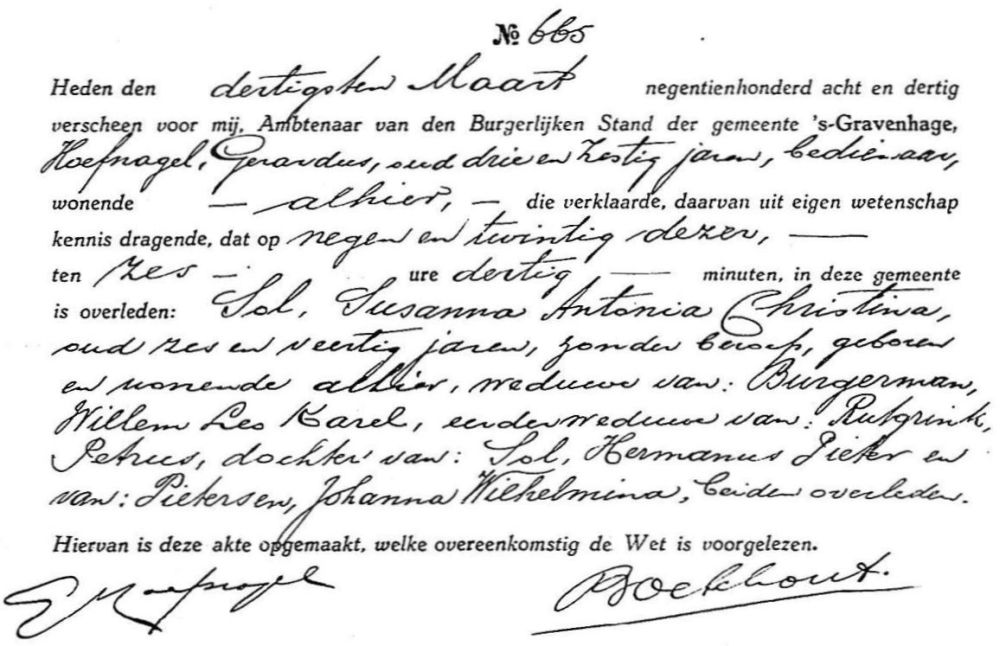 № 665
Heden den dertigsten Maart negentienhonderd acht en dertig
verscheen voor mij, Ambtenaar van den Burgerlijken Stand der gemeente 's-Gravenhage,
Hoefnagel, Gerardus, oud drie en zestig jaren, bedienaar,
wonende — alhier, — die verklaarde, daarvan uit eigen wetenschap
kennis dragende, dat op negen en twintig dezer, —
ten zes — ure dertig — minuten, in deze gemeente
is overleden: Sol, Susanna Antonia Christina,
oud zes en veertig jaren, zonder beroep, geboren
en wonende alhier, weduwe van: Burgerman,
Willem Leo Karel, eerder weduwe van: Rutgrink,
Petrus, dochter van: Sol, Hermanus Pieter en
van: Pietersen, Johanna Wilhelmina, beiden overleden.
Hiervan is deze akte opgemaakt, welke overeenkomstig de Wet is voorgelezen.
G Hoefnagel Boekhout.